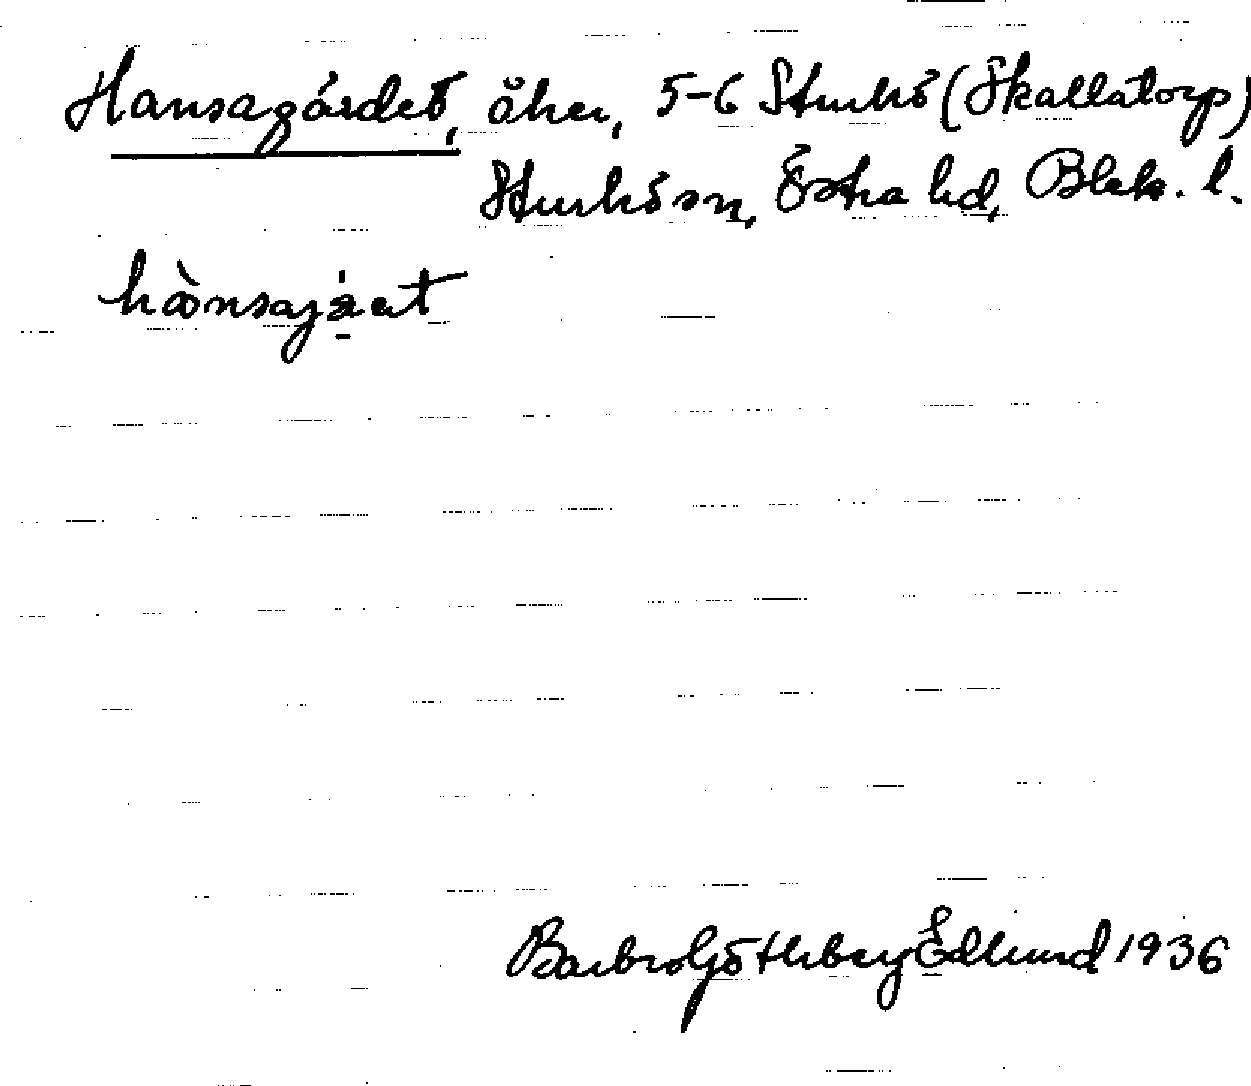 Hansagärdet, åker, 5-6 Sturkö (Skallatorp)
Sturkö sn, Östra hd, Blek. l.
Barbro Götlberg Edlund 1936